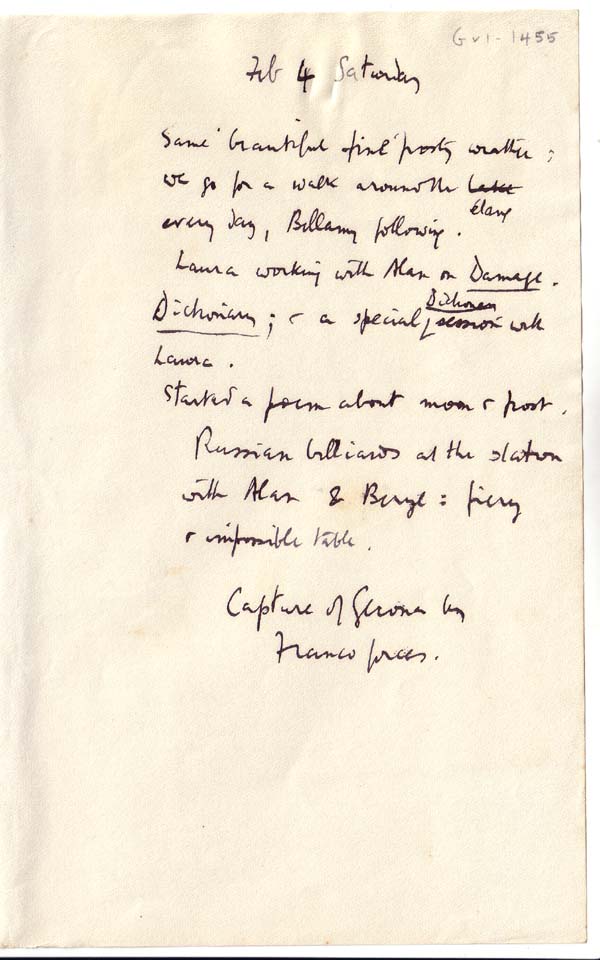 Gv1-1455
Feb 4 Saturday
Same beautiful fine frosty weather;
we go for a walk around the Lake
étang
every day, Bellamy following.
Laura working with Alan on Damage.
Dictionary
Dictionary; & a special session with
Laura.
Started a poem about moon & frost.
Russian billiards at the station
with Alan & Beryl: fiery
& impossible table.
Capture of Gerona by
Franco forces.